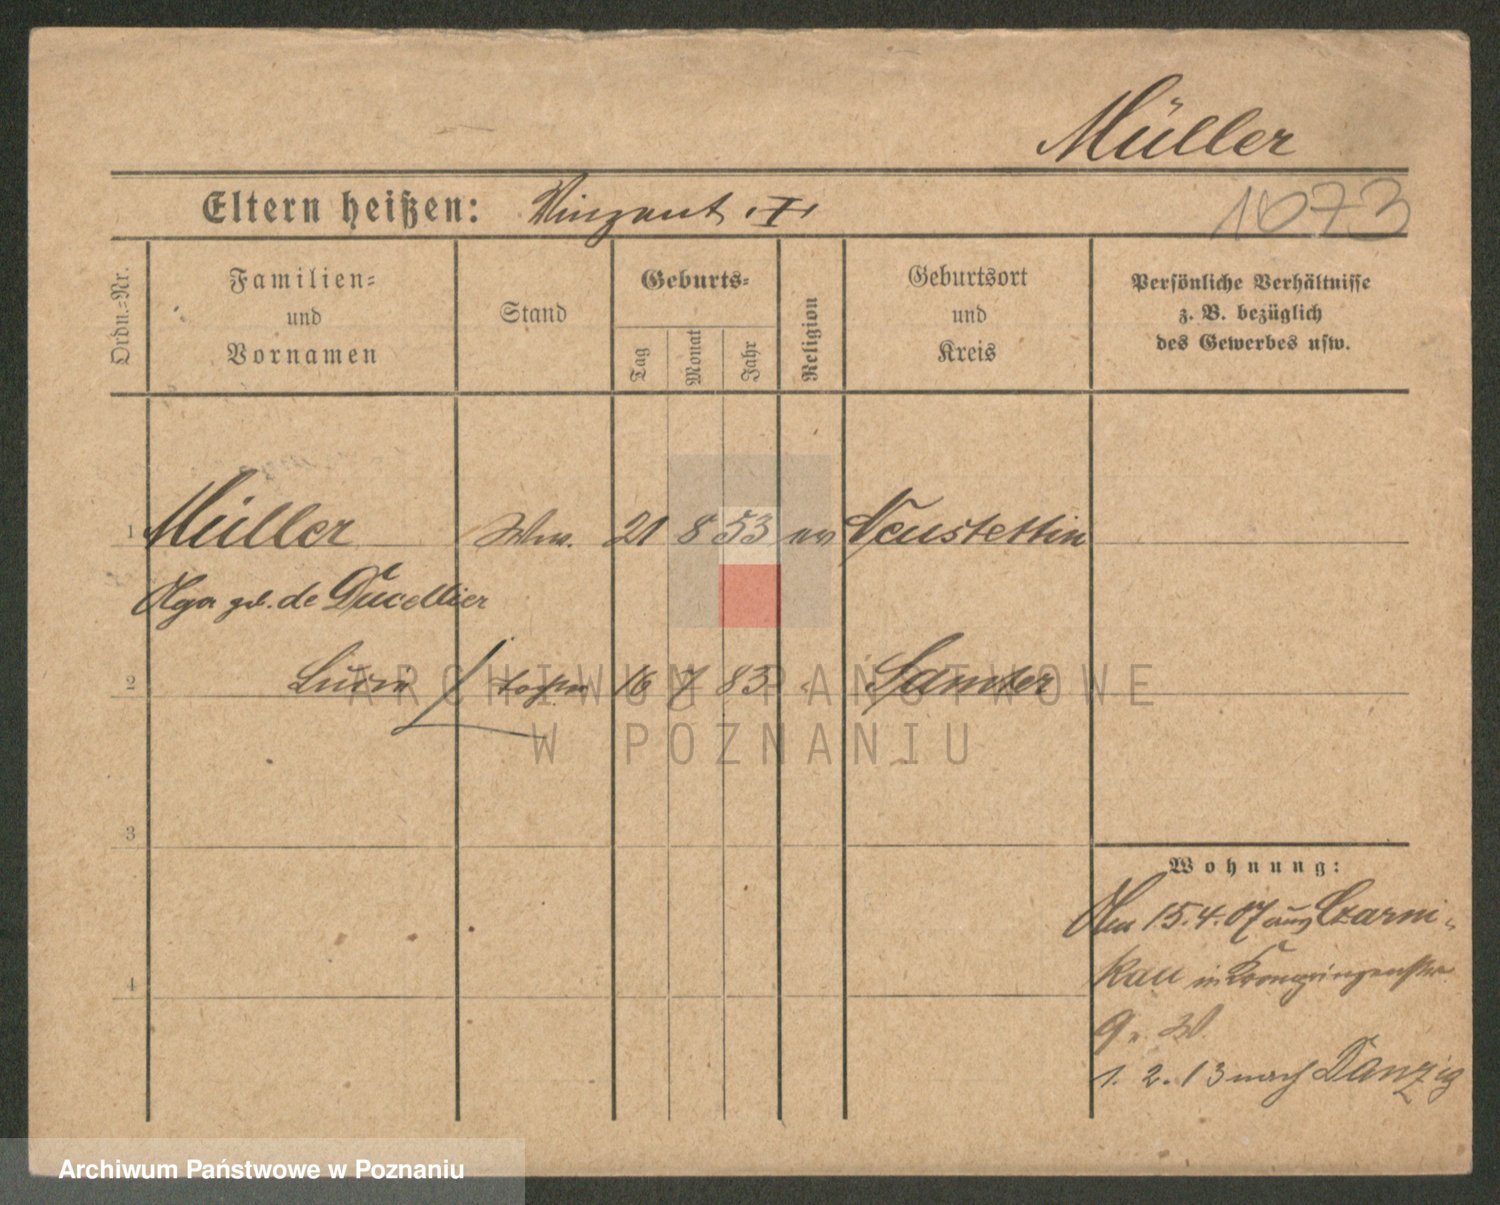 Müller
Eltern heißen: Vinzent
1073
Ordn.-Nr.
Familien- und Vornamen
Stand
Geburts-
Tag
Monat
Jahr
Religion
Geburtsort und Kreis
Persönliche Verhältnisse
z. B. bezüglich
des Gewerbes usw.
1 Müller Wwe. 21 8 53 ev Neustettin
Olga geb. de Ducellier
2 Lucie Tochter 16 7 83 " Samter
3
4
Wohnung:
Am 15.4.07 aus Czarni-
kau in Kronprinzenstr
9. W.
1. 2. 13 nach Danzig
ARCHIWUM PAŃSTWOWE
W POZNANIU
Archiwum Państwowe w Poznaniu